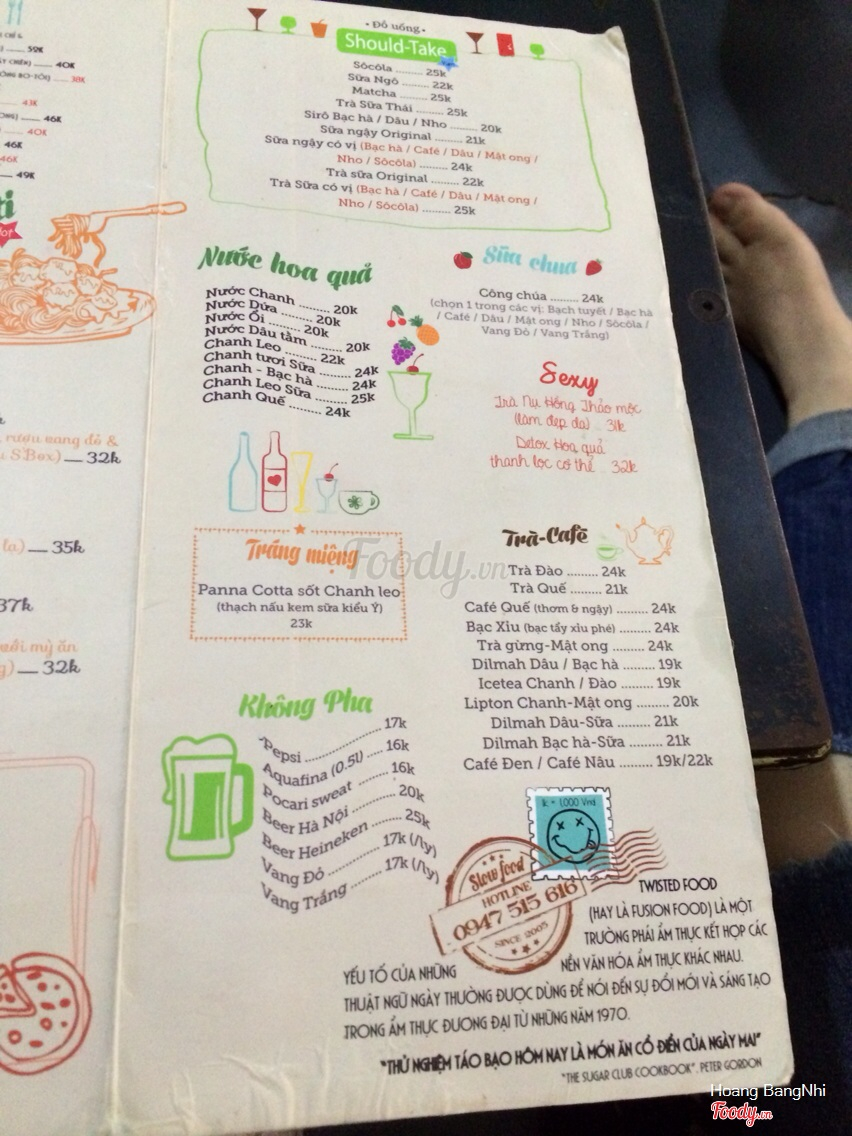 59k
40K
38K
43K
46K
40K
46K
46K
49K
rượu vang đỏ &
S'Box) — 32k
la) — 35k
37k
mỳ ăn
32k
• Đồ uống •
Should-Take
Sôcôla ......... 25k
Sữa Ngô ......... 22k
Matcha ......... 25k
Trà Sữa Thái ......... 25k
Sirô Bạc hà / Dâu / Nho ......... 20k
Sữa ngậy Original ......... 21k
Sữa ngậy có vị (Bạc hà / Café / Dâu / Mật ong /
Nho / Sôcôla) ......... 24k
Trà sữa Original ......... 22k
Trà Sữa có vị (Bạc hà / Café / Dâu / Mật ong /
Nho / Sôcôla) ......... 25k
Nước hoa quả
Nước Chanh ......... 20k
Nước Dứa ......... 20k
Nước Ổi ......... 20k
Nước Dâu tằm ......... 20k
Chanh Leo ......... 22k
Chanh tươi Sữa ......... 24k
Chanh - Bạc hà ......... 24k
Chanh Leo Sữa ......... 25k
Chanh Quế ......... 24k
Sữa chua
Công chúa ......... 24k
(chọn 1 trong các vị: Bạch tuyết / Bạc hà
/ Café / Dâu / Mật ong / Nho / Sôcôla /
Vang Đỏ / Vang Trắng)
Sexy
Trà Nụ Hồng Thảo mộc
(làm đẹp da) .. 31k
Detox Hoa quả
thanh lọc cơ thể .. 32k
Tráng miệng
Panna Cotta sốt Chanh leo
(thạch nấu kem sữa kiểu Ý)
23k
Trà-Café
Trà Đào ......... 24k
Trà Quế ......... 21k
Café Quế (thơm & ngậy) ......... 24k
Bạc Xỉu (bạc tẩy xỉu phé) ......... 24k
Trà gừng-Mật ong ......... 24k
Dilmah Dâu / Bạc hà ......... 19k
Icetea Chanh / Đào ......... 19k
Lipton Chanh-Mật ong ......... 20k
Dilmah Dâu-Sữa ......... 21k
Dilmah Bạc hà-Sữa ......... 21k
Café Đen / Café Nâu ......... 19k/22k
Không Pha
Pepsi ......... 17k
Aquafina (0.5l) ......... 16k
Pocari sweat ......... 16k
Beer Hà Nội ......... 20k
Beer Heineken ......... 25k
Vang Đỏ ......... 17k (/ly)
Vang Trắng ......... 17k (/ly)
1k = 1,000 Vnd
Slow food
HOTLINE
0947 515 616
SINCE 2005
TWISTED FOOD
(HAY LÀ FUSION FOOD) LÀ MỘT
TRƯỜNG PHÁI ẨM THỰC KẾT HỢP CÁC
YẾU TỐ CỦA NHỮNG NỀN VĂN HÓA ẨM THỰC KHÁC NHAU.
THUẬT NGỮ NGÀY THƯỜNG ĐƯỢC DÙNG ĐỂ NÓI ĐẾN SỰ ĐỔI MỚI VÀ SÁNG TẠO
TRONG ẨM THỰC ĐƯƠNG ĐẠI TỪ NHỮNG NĂM 1970.
"THỬ NGHIỆM TÁO BẠO HÔM NAY LÀ MÓN ĂN CỔ ĐIỂN CỦA NGÀY MAI"
"THE SUGAR CLUB COOKBOOK". PETER GORDON
Foody.vn
Hoang BangNhi
Foody.vn